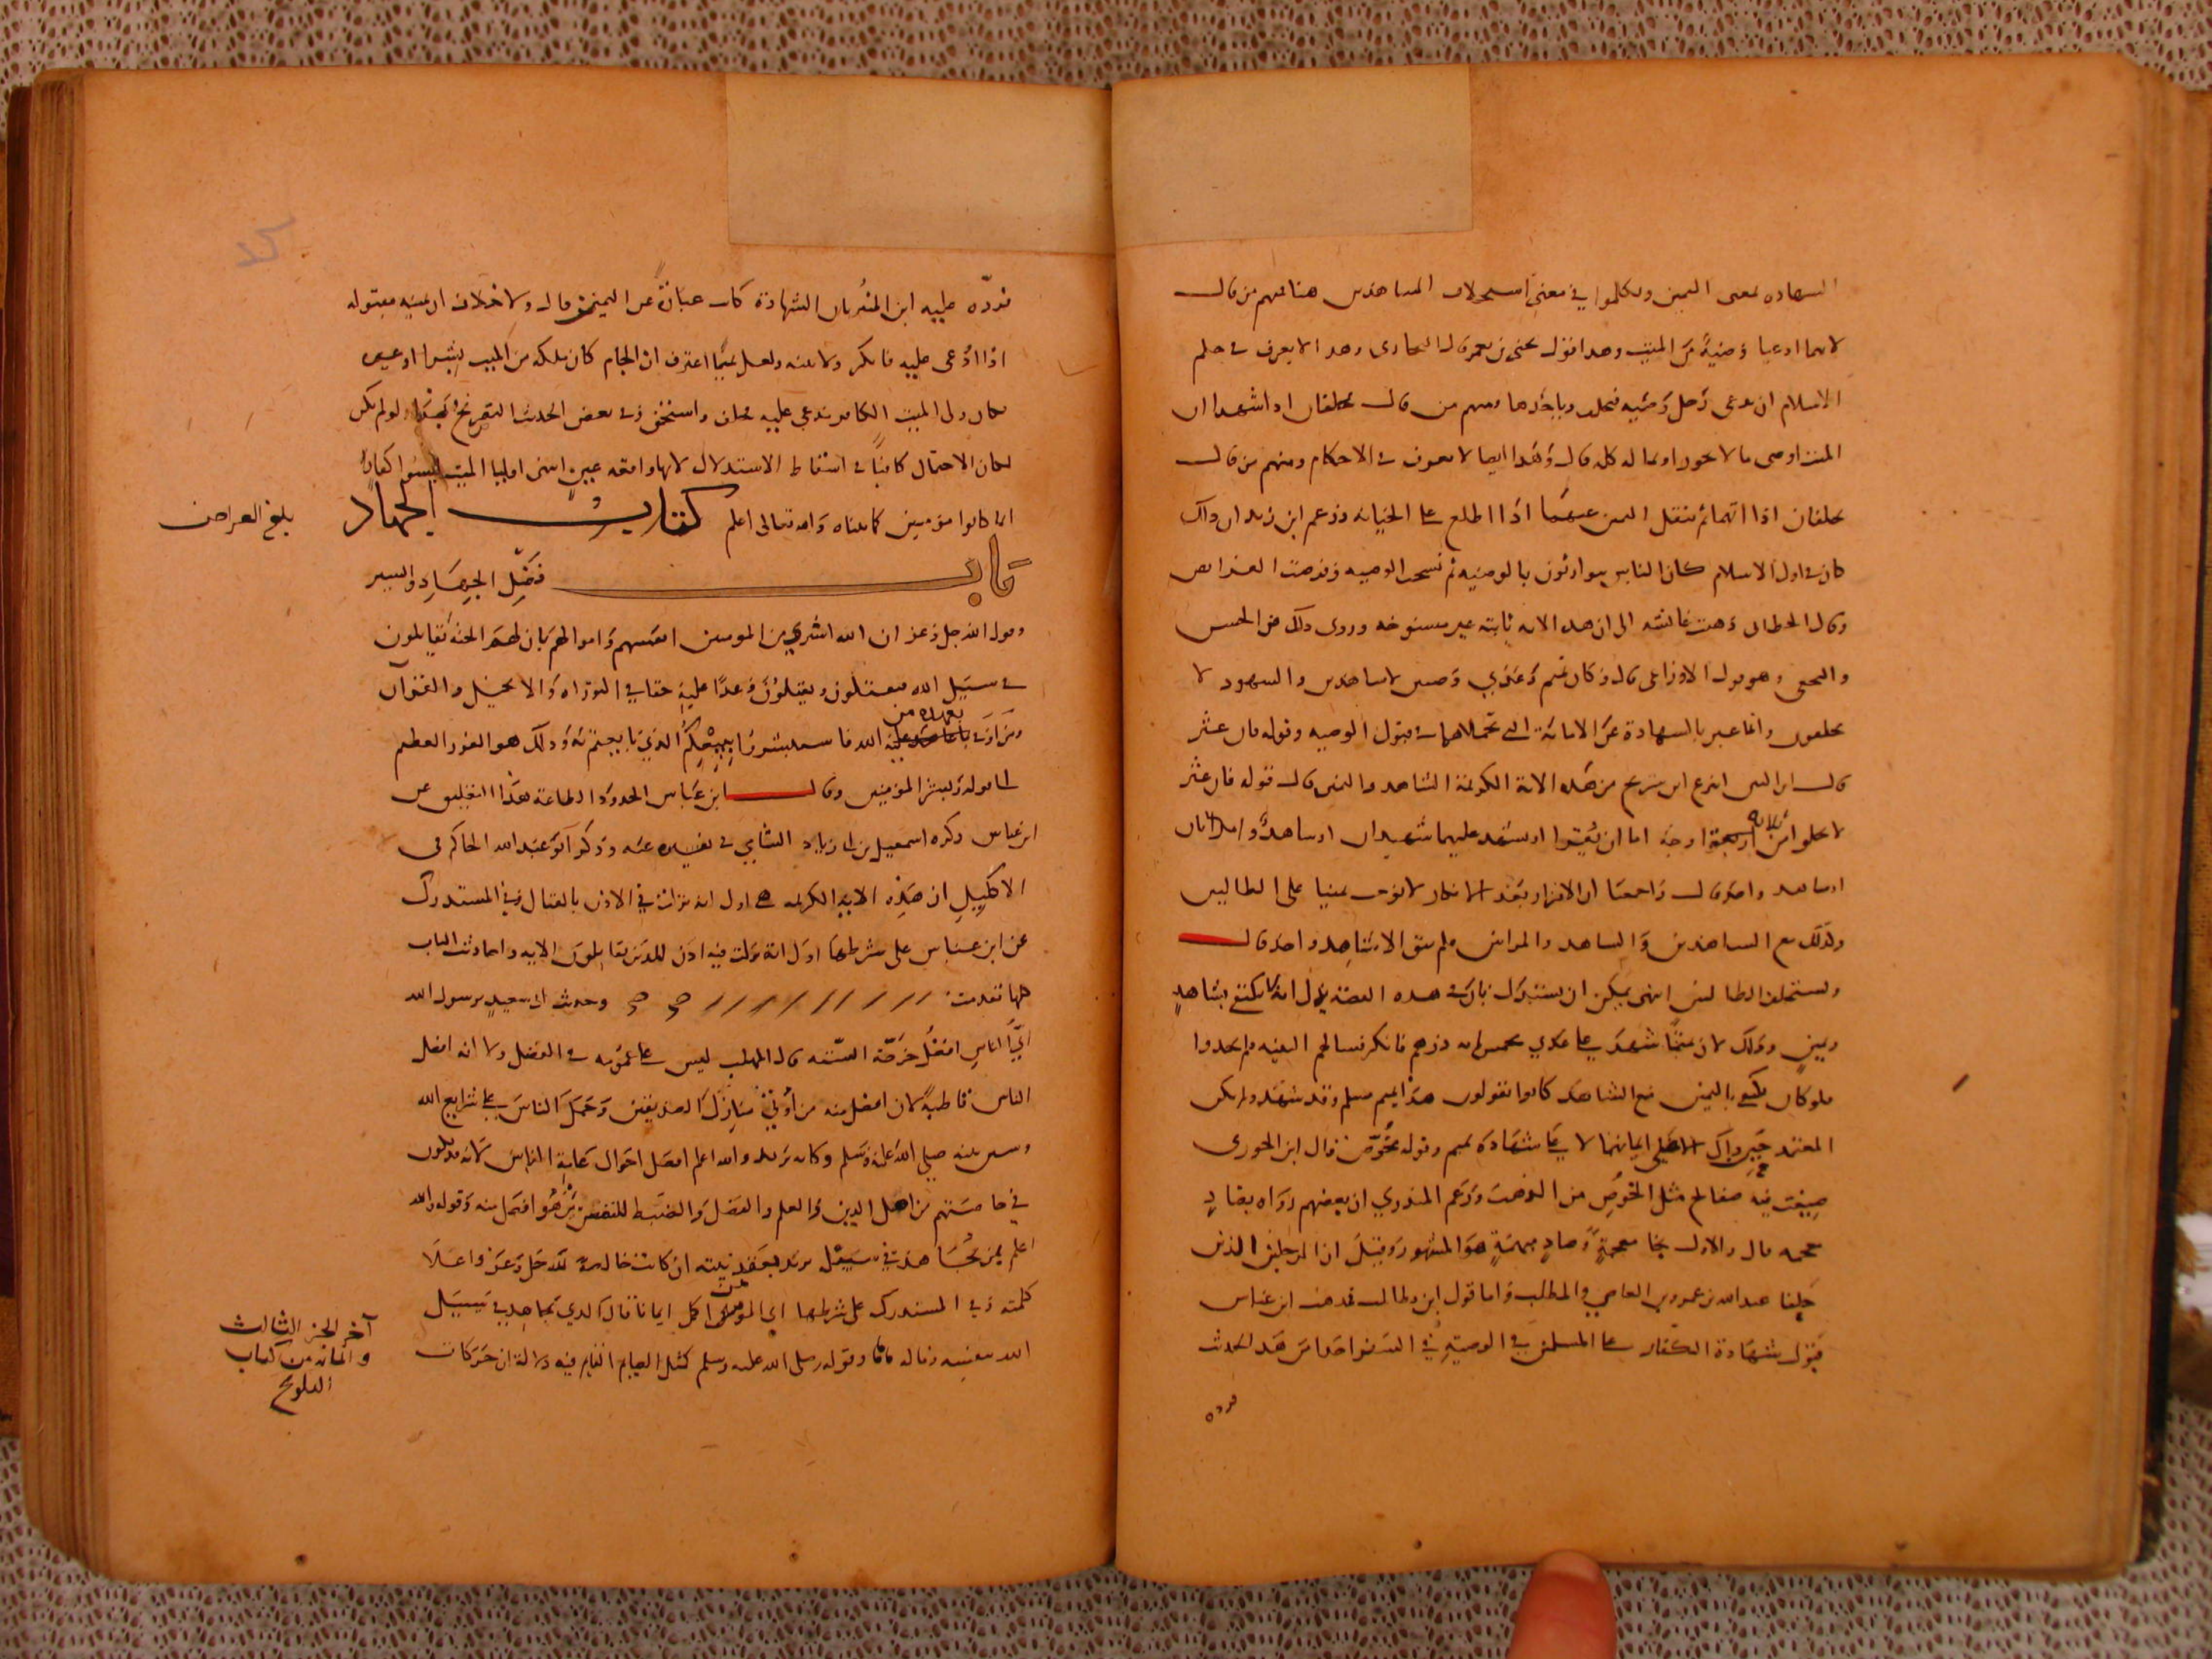 الشهادة بمعنى اليمين وتكلموا في معنى استحلاف الشاهدين هنا فمنهم من قال
لانهما ادعيا وصية من الميت وهذا قول يحيى بن يعمر قال النحاس وهذا لا يعرف في حكم
الاسلام ان يدعي رجل وصية فيحلف وياخذها ومنهم من قال يحلفان اذا شهدا ان
الميت اوصى بما لا يجوز او بماله كله قال وهذا ايضا لا يعرف في الاحكام ومنهم من قال
يحلفان اذا اتهما ثم ينقل اليمين عنهما اذا اطلع على الخيانة وزعم ابن زيد ان ذلك
كان في اول الاسلام كان الناس يتوارثون بالوصية ثم نسخت الوصية وفرضت الفرائض
وقال الخطابي ذهبت عائشة الى ان هذه الاية ثابتة غير منسوخة وروى ذلك عن الحسن
والنخعي وهو قول الاوزاعي قال وكان تميم وعدي وصيين لا شاهدين والشهود لا
يحلفون وانما عبر بالشهادة عن الامانة التي تحملاها في قبول الوصية وقوله فان عثر
قال ابن التين انتزع ابن شريح من هذه الاية الكريمة الشاهد واليمين قال قوله فان عثر
لا يخلوا من اربعة ثلاثة اوجه اما ان يقرا او يشهد عليهما شاهدان او شاهد وامراتان
او شاهد واحد قال واجمعنا ان الاقرار بعد الانكار لا يوجب يمينا على الطالبين
وكذلك مع الشاهدين والشاهد والمراتين فلم يبق الا شاهد واحد قال
ويستحلف الطالبين انتهى يمكن ان يستدل بان في هذه القصة يدل انه لا يكتفى بشاهد
ويمين وذلك لان شهد على عدي بخمسمائة درهم فانكر فسالهم البينة فلم يجدوا
فلو كان يكتفي باليمين مع الشاهد كانوا يقولون هذا تميم مسلم وقد شهد ولم يكن
شهادة تميم وقوله مخوص قال ابن الجوزي
صيغت فيه صفائح مثل الخوص من الذهب وزعم المنذري ان بعضهم رواه بضاد
معجمة قال والاول بخا معجمة وصاد مهملة هو المشهور وقيل ان الرجلين الذين
حلفا عبد الله بن عمرو بن العاصي والمطلب واما قول ابن بطال ذهب ابن عباس
قبول شهادة الكفار على المسلمين في الوصية في السفر اخذا من هذا الحديث
فرده
فرده عليه ابن المنير بان الشهادة كانت عبارة عن اليمين قال ولا خلاف ان يمينه مقبولة
اذا ادعى عليه فانكر ولا بينة ولعل تميما اعترف ان الجام كان ملكه من الميت بشرا او غيره
فكان ولي الميت الكافر يدعي عليه فحلف واستحق وفي بعض الحديث التصريح بهذا ولو لم يكن
لكان الاحتمال كافيا في اسقاط الاستدلال لانها واقعة عين انتهى اوليا الميت ليسوا كفارا
انما كانوا مؤمنين كما بيناه والله تعالى اعلم كتاب الجهاد
بلغ العراض
باب فضل الجهاد والسير
وقول الله جل وعز ان الله اشترى من المومنين انفسهم واموالهم بان لهم الجنة يقاتلون
في سبيل الله فيقتلون ويقتلون وعدا عليه حقا في التوراة والانجيل والقرآن
ومن اوفى بعهده من الله فاستبشروا ببيعكم الذي بايعتم به وذلك هو الفوز العظيم
الى قوله وبشر المؤمنين وقال ابن عباس الحدود الطاعة هذا التعليق عن
ابن عباس ذكره اسمعيل بن ابي زياد الشامي في تفسيره عنه وذكر ابو عبد الله الحاكم في
الاكليل ان هذه الاية الكريمة هي اول اية نزلت في الاذن بالقتال وفي المستدرك
عن ابن عباس على شرطهما اول اية نزلت فيه اذن للذين يقاتلون الاية واحاديث الباب
كلها تقدمت وحديث ابي سعيد يرسول الله
اي الناس افضل خرجه الستة قال المهلب ليس على عمومه في الفضل ولا انه افضل
الناس قاطبة لان افضل منه من اوتي منازل الصديقين وحمل الناس على شرايع الله
وسنن نبيه صلى الله عليه وسلم وكانه يريد والله اعلم افضل احوال عامة الناس لانه قد يكون
في خاصتهم من اهل الدين والعلم والفضل والضبط للنفس من هو افضل منه وقوله والله
اعلم بمن يجاهد في سبيله يريد بعقد نيته ان كانت خالصة لله جل وعز واعلا
كلمته وفي المستدرك على شرطهما اي المومنين اكمل ايمانا قال الذي يجاهد في سبيل
الله بنفسه وماله وقوله صلى الله عليه وسلم كمثل الصايم القايم فيه دلالة ان حركات
آخر الجز الثالث
والمائة من كتاب
التلويح